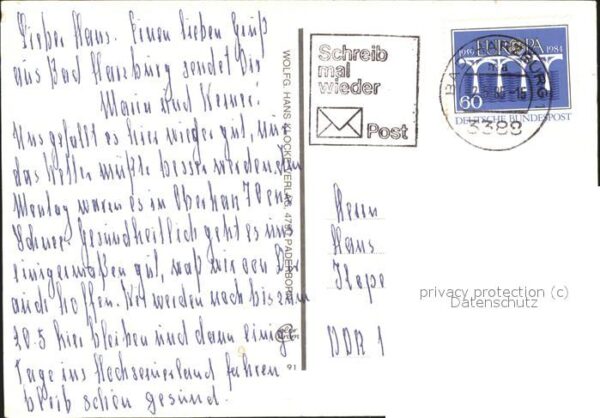 Lieber Hans. Einen lieben Gruß
aus Bad Harzburg sendet Dir
Maria und Werner.
Uns gefällt es hier wieder gut, nur
das Wetter müßte besser werden. Am
Montag waren es in Oberhar 70 cm
Schnee. Gesundheitlich geht es uns
einigermaßen gut, waß wir von Dir
auch hoffen. Wir werden noch bis zum
30.5 hier bleiben und dann einig
Tage ins Hochsauerland fahren
bleib schön gesund.
WOLFG. HANS KLOCKE VERLAG, 4790 PADERBORN
91
Schreib
mal
wieder
Post
1959 EUROPA 1984
60
DEUTSCHE BUNDESPOST
BAD HARZBURG 1
3388
Herrn
Hans
DDR 1
privacy protection (c)
Datenschutz